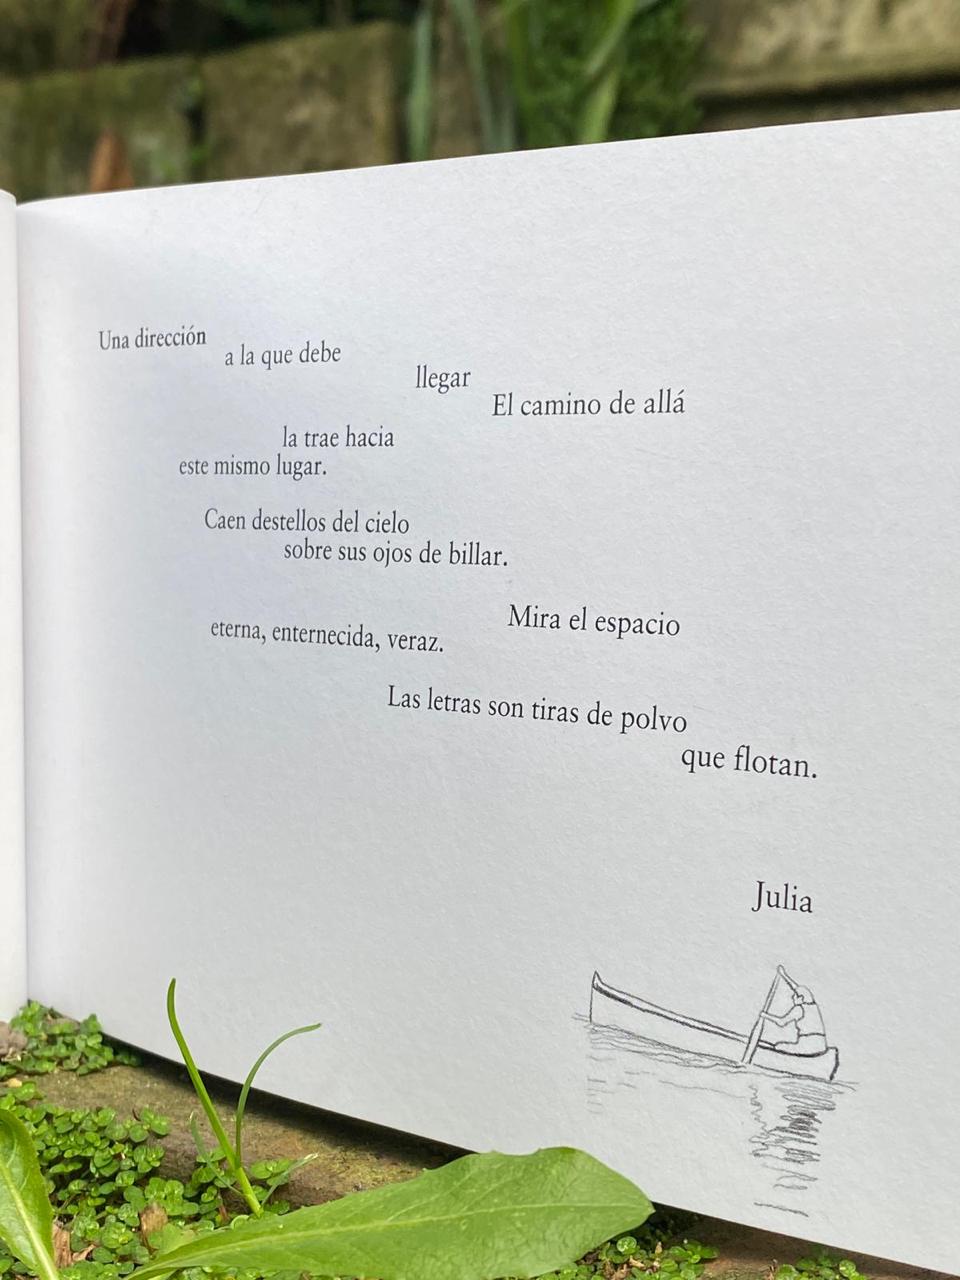 Una dirección
a la que debe
llegar
El camino de allá
la trae hacia
este mismo lugar.
Caen destellos del cielo
sobre sus ojos de billar.
Mira el espacio
eterna, enternecida, veraz.
Las letras son tiras de polvo
que flotan.
Julia